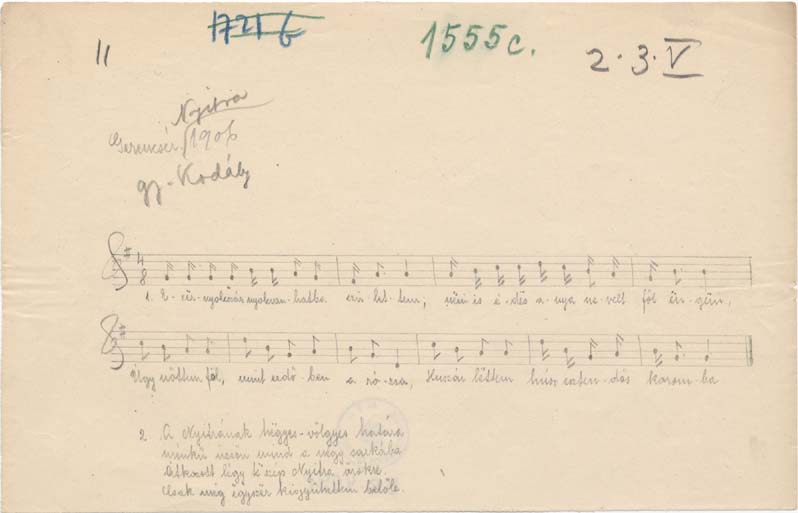 11
1721 b
1555c.
2. 3. V
Nyitra
Gerencsér 1906
gy. Kodály
4
8
1. E - zër - nyolcszáz nyolcvan - hatba szü - let - tem,
is é - dës a - nya ne - velt föl ën - gëm,
Úgy nőttem föl, mint erdő - ben a ró - zsa, Huszár lëttem húsz eszten - dős korom - ba
2. A Nyitrának hëgyes - völgyes határa
mind a négy sarkába
Átkozott légy közép Nyitra örökre
Csak még ëgyször belőle.